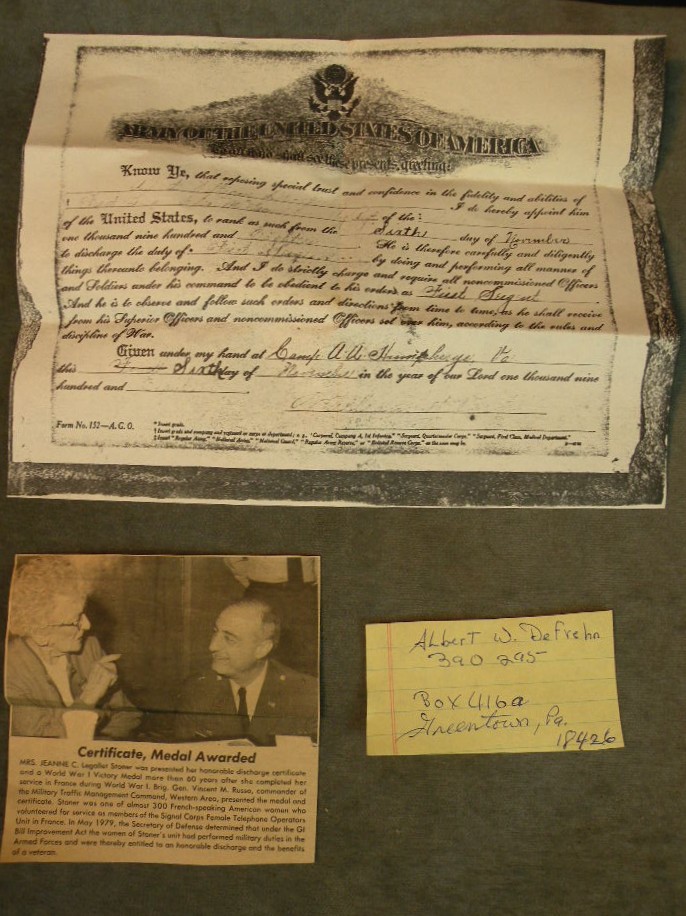 ARMY OF THE UNITED STATES OF AMERICA
To all who shall see these presents, greeting:
Know Ye, that reposing special trust and confidence in the fidelity and abilities of
I do hereby appoint him
of the : 
of the United States, to rank as such from the Sixth day of November
one thousand nine hundred and
He is therefore carefully and diligently
to discharge the duty of
by doing and performing all manner of
things thereunto belonging. And I do strictly charge and require all noncommissioned Officers
and Soldiers under his command to be obedient to his orders as First Sergent
And he is to observe and follow such orders and directions from time to time, as he shall receive
from his Superior Officers and noncommissioned Officers set over him, according to the rules and
discipline of War.
Given under my hand at Camp A A Humphreys Va
this Sixth day of November in the year of our Lord one thousand nine
hundred and
Form No. 152—A. G. O.
* Insert grade.
† Insert grade and company and regiment or corps or department; e. g., "Corporal, Company A, 1st Infantry," "Sergeant, Quartermaster Corps," "Sergeant, First Class, Medical Department."
‡ Insert "Regular Army," "National Army," "National Guard," "Regular Army Reserve," or "Enlisted Reserve Corps," as the case may be.
Certificate, Medal Awarded
MRS. JEANNE C. Legallet Stoner was presented her honorable discharge certificate
and a World War I Victory Medal more than 60 years after she completed her
service in France during World War I. Brig. Gen. Vincent M. Russo, commander of
the Military Traffic Management Command, Western Area, presented the medal and
certificate. Stoner was one of almost 300 French-speaking American women who
volunteered for service as members of the Signal Corps Female Telephone Operators
Unit in France. In May 1979, the Secretary of Defense determined that under the GI
Bill Improvement Act the women of Stoner's unit had performed military duties in the
Armed Forces and were thereby entitled to an honorable discharge and the benefits
of a veteran.
Albert W. DeFrehn
390 295
Box 416a
Greentown, Pa.
18426